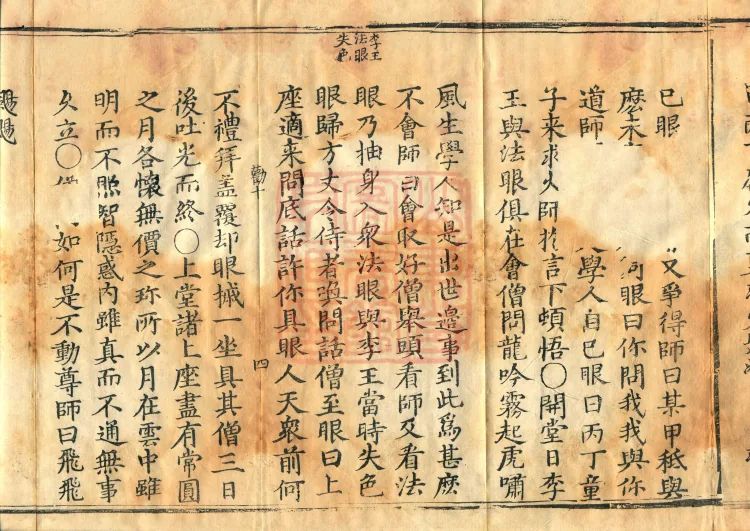 已眼
又爭得師曰某甲秪與
麼
眼曰你問我我與你
道師
學人自已眼曰丙丁童
子来求火師扵言下頓悟○開堂日李
王與法眼俱在會僧問龍吟霧起虎嘯
李王
法眼
失色
風生學人知是出世邉事到此爲甚麽
不會師曰會取好僧舉頭看師又看法
眼乃抽身入衆法眼與李王當時失色
眼歸方丈令侍者喚問話僧至眼曰上
座適来問底話許你具眼人天衆前何
四
不禮拜盖覆却眼摵一坐具其僧三日
後吐光而終○上堂諸上座盡有常圓
之月各懷無價之珎所以月在雲中雖
明而不照智隠惑内雖真而不通無事
久立○
如何是不動尊師曰飛飛
颺颺